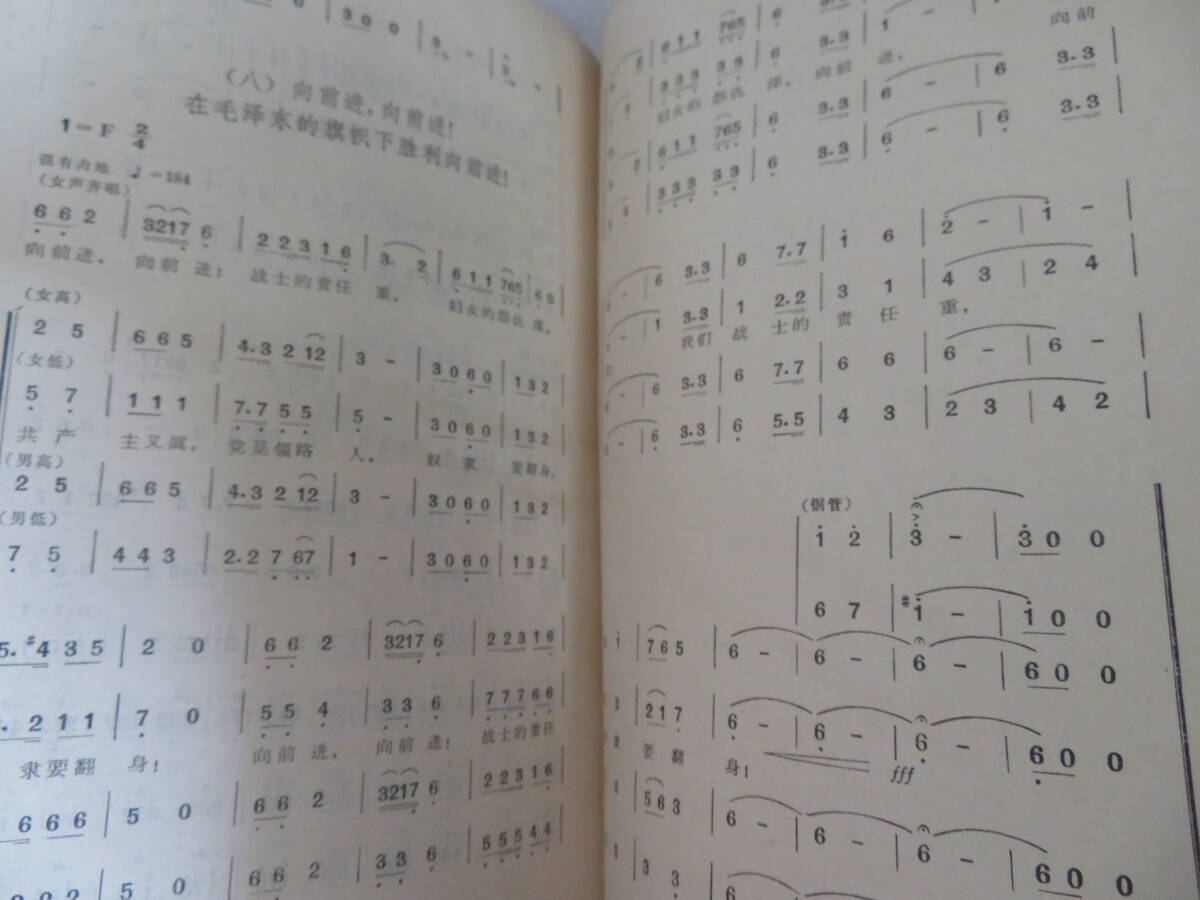 3 0 0
（八）向前进，向前进！
在毛泽东的旗帜下胜利向前进！
1=F 2/4
强有力地 ♩=184
（女声齐唱）
6 6 2 | 3217 6 | 2 2 3 1 6 | 3· 2 | 6 1 1 765 | 6 0
向前进，向前进！战士的责任重，妇女的怨仇深。
（女高）
2 5 | 6 6 5 | 4·3 2 12 | 3 - | 3 0 6 0 | 1 3 2
（女低）
5 7 | 1 1 1 | 7·7 5 5 | 5 - | 3 0 6 0 | 1 3 2
共产主义真，党是领路人。奴隶要翻身，
（男高）
2 5 | 6 6 5 | 4·3 2 12 | 3 - | 3 0 6 0 | 1 3 2
（男低）
7 5 | 4 4 3 | 2·2 7 67 | 1 - | 3 0 6 0 | 1 3 2
5· #4 3 5 | 2 0 | 6 6 2 | 3217 6 | 2 2 3 1 6
2 1 1 | 7 0 | 5 5 4 | 3 3 6 | 7 7 7 6 6
隶要翻身！向前进，向前进！战士的责任
6 6 6 | 5 0 | 6 6 2 | 3217 6 | 2 2 3 1 6
2 2 2 | 5 0 | 6 6 2 | 3 3 6 | 5 5 5 4 4
6 1 1 765 | 6 3·3 | 1
向前
3 3 3 3 3 | 6 3·3 | 6 - | 6 3·3
妇女的怨仇深，向前进，
6 1 1 765 | 6 3·3 | 6 - | 6 3·3
3 3 3 3 3 | 6 3·3
6 3·3 | 6 7·7 | 1 6 | 2 - | 1 -
1 3·3 | 1 2·2 | 3 1 | 4 3 | 2 4
我们战士的责任重，
6 3·3 | 6 7·7 | 6 6 | 6 - | 6 -
6 3·3 | 6 5·5 | 4 3 | 2 3 | 4 2
（铜管）
1 2 | 3 - | 3 0 0
6 7 | #1 - | 1 0 0
1 | 7 6 5 | 6 - | 6 - | 6 - | 6 0 0
2 1 7 | 6 - | 6 - | 6 - | 6 0 0
要翻身！
fff
6 | 5 6 3 | 6 - | 6 - | 6 - | 6 0 0
3 3